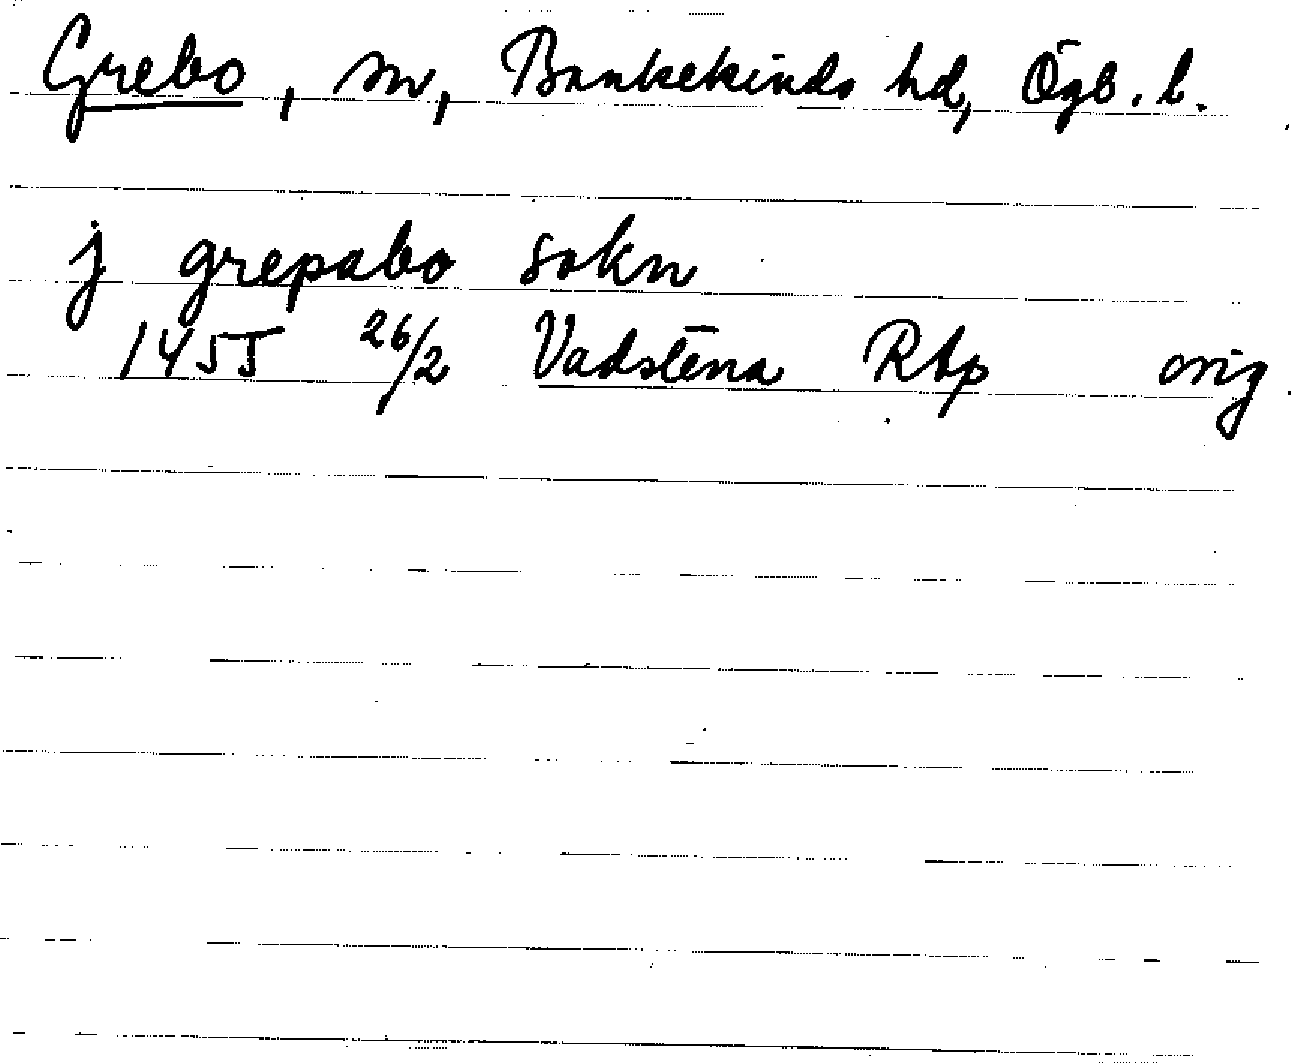 Grebo, sn, Bankekinds hd, Ögb. l.
j grepabo sokn
1455 26/2 Vadstena Rbp orig